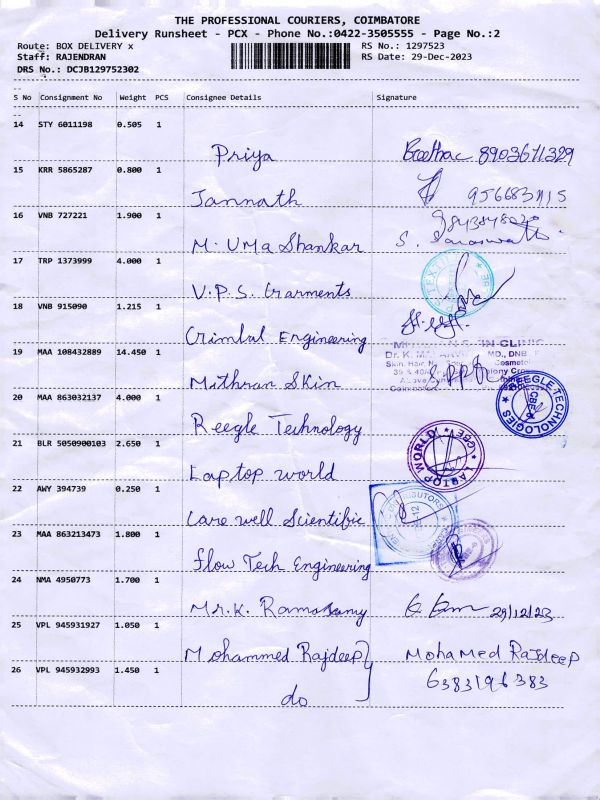 THE PROFESSIONAL COURIERS, COIMBATORE
Delivery Runsheet - PCX - Phone No.:0422-3505555 - Page No.:2
Route: BOX DELIVERY x RS No.: 1297523
Staff: RAJENDRAN RS Date: 29-Dec-2023
DRS No.: DCJB129752302
S No Consignment No Weight PCS Consignee Details Signature
14 STY 6011198 0.505 1
Priya 8903671329
15 KRR 5865287 0.800 1
Jannath
16 VNB 727221 1.900 1
M. Uma Shankar S.
17 TRP 1373999 4.000 1
V.P.S. Garments
18 VNB 915090 1.215 1
Crimbul Engineering
19 MAA 108432889 14.450 1
SKIN CLINIC
Dr. K. MD., DNB
Mithran Skin
20 MAA 863032137 4.000 1
REEGLE TECHNOLOGIES CBE-6
Reegle Technology
21 BLR 5050900103 2.650 1
LAPTOP WORLD CBE
Laptop world
22 AWY 394739 0.250 1
Care well Scientific
23 MAA 863213473 1.800 1
Flow Tech Engineering
24 NMA 4950773 1.700 1
Mr.K. Ramasamy 29/12/23
25 VPL 945931927 1.050 1
Mohammed Rajdeep Mohamed Rajdeep
26 VPL 945932993 1.450 1
6383196383
do